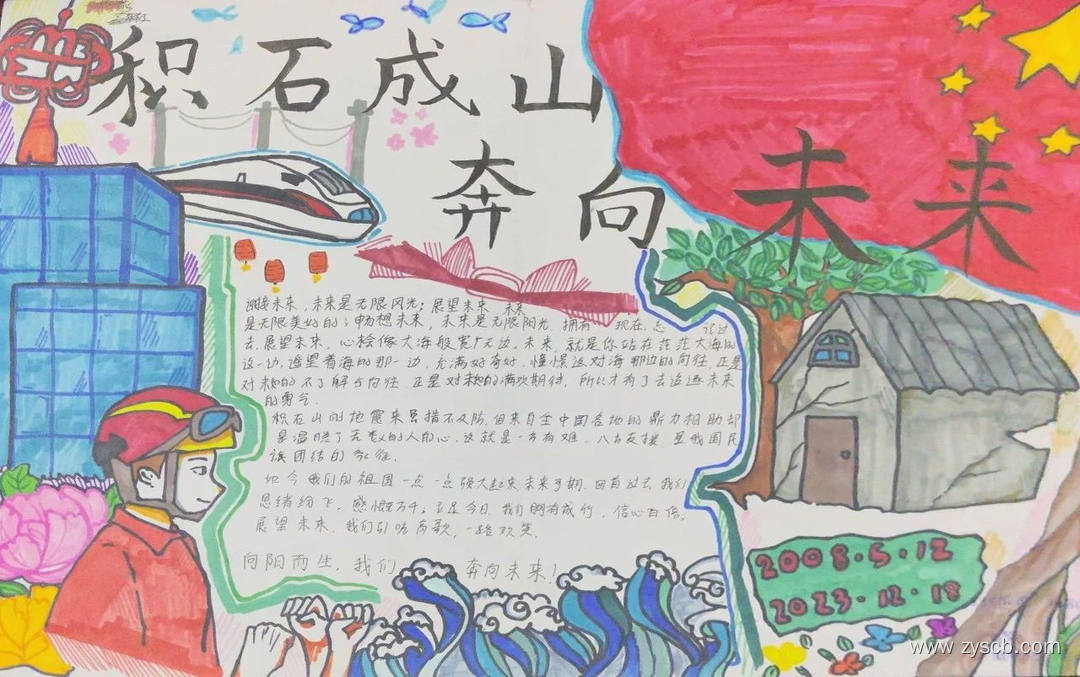 积石成山
奔向未来
未来,未来是无限风光;展望未来,未来
是无限美好的;畅想未来,未来是无限阳光,拥有 现在,忘 记过
去,展望未来,心会像大海般宽广无边。未来,就是你站在茫茫大海的
这一边,遥望着海的那一边,充满好奇好,憧憬这对海那边的向往,正是
对 的不了解与向往,正是对 的满欢期待,所以才有了去追逐未来
的勇气。
积石山的地震来虽措不及防,但来自全中国各地的鼎力相助却
是温暖了无数的人的心,这就是一方有难,八方支援,是我国民
族团结的象征。
如今我们的祖国一点一点强大起来,未来可期,回首过去,我们
思绪纷飞,感慨万千;立足今日,我们胸有成竹,信心百倍,
展望未来,我们引吭高歌,一路欢笑。
向阳而生,我们 奔向未来!
2008.5.12
2023.12.18
www.zyscb.com